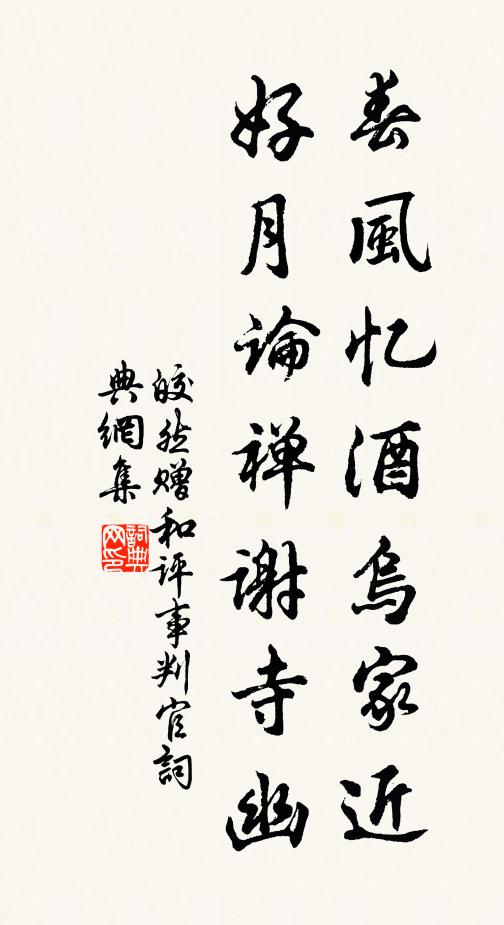 春風忆酒烏家近
好月論禅謝寺幽
皎然赠和评事判官詞
典網集
詞典
网印